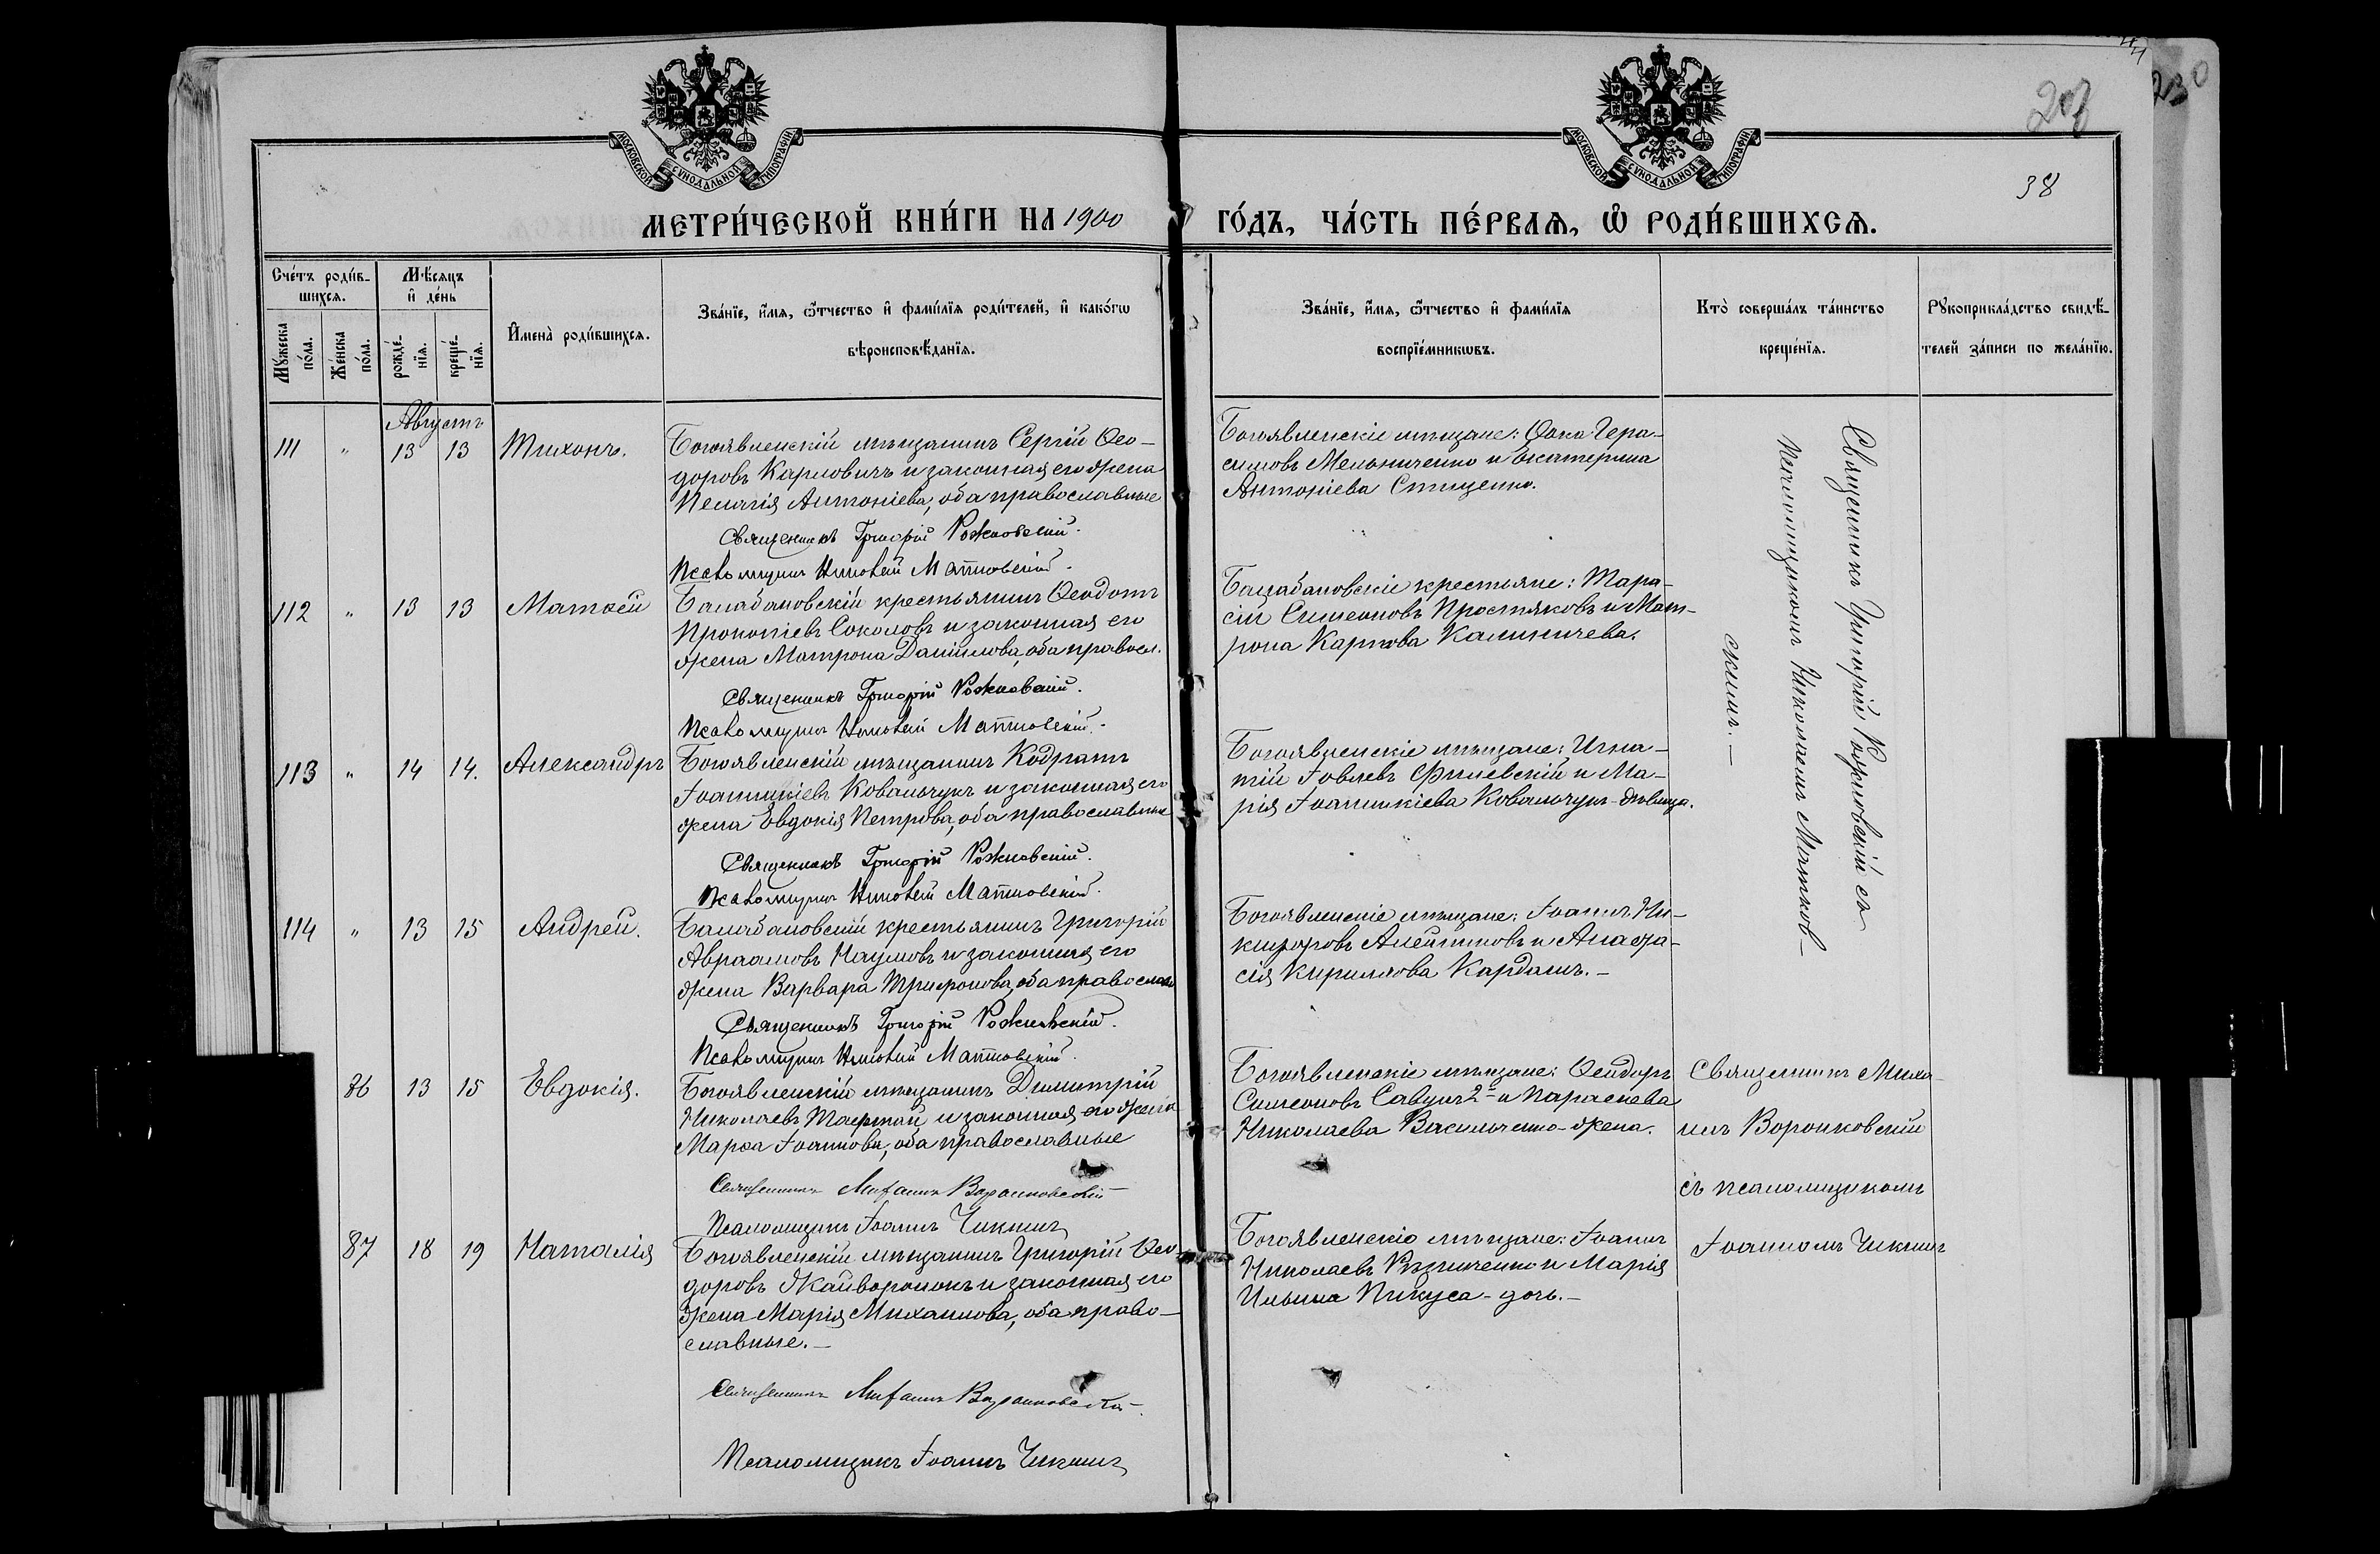 230
207
38
МОСКОВСКОЙ СѴНОДАЛЬНОЙ ТИПОГРАФІИ
МОСКОВСКОЙ СѴНОДАЛЬНОЙ ТИПОГРАФІИ
МЕТРИ́ЧЕСКОЙ КНИ́ГИ НА 1900 ГО́ДЪ, ЧА́СТЬ ПЕ́РВАѦ, Ѡ РОДИ́ВШИХСѦ.
Сче́тъ роди́в-
шихсѧ.
Мꙋ́жеска по́ла.
Же́нска по́ла.
Мѣ́сѧцъ
и҆ де́нь
рожде́-
нїѧ.
креще́-
нїѧ.
И҆мена̀ роди́вшихсѧ.
Зва́нїе, и҆́мѧ, ѻ҆́тчество и҆ фами́лїѧ роди́телей, и҆ како́гѡ
вѣроисповѣ́данїѧ.
Зва́нїе, и҆́мѧ, ѻ҆́тчество и҆ фами́лїѧ
воспрїе́мникѡвъ.
Кто̀ соверша́лъ та́инство
креще́нїѧ.
Рꙋкоприкла́дство свидѣ́-
телей за́писи по жела́нїю.
Августъ
111 " 13 13 Тихонъ.
Богоявленскій мѣщанинъ Сергій Ѳео-
доровъ Карловичъ и законная его жена
Пелагія Антоніева, оба православные
Священникъ Григорій Рожновскій.
Псаломщикъ Николай Матковскій.
Богоявленскіе мѣщане: Ѳока Гера-
симовъ Мельниченко и Екатерина
Антоніева Стиценко.
Священникъ Григорій Рожновскій съ
псаломщикомъ Николаемъ Матков-
скимъ.—
112 " 13 13 Матѳей
Балабановскій крестьянинъ Ѳеодотъ
Прокопіевъ Соколовъ и законная его
жена Матрона Даніилова, оба правосл.
Священникъ Григорій Рожновскій.
Псаломщикъ Николай Матковскій.
Балабановскіе крестьяне: Тара-
сій Симеоновъ Простяковъ и Мат-
рона Карпова Калиничева.
113 " 14 14. Александръ
Богоявленскій мѣщанинъ Кодратъ
Іоанникіевъ Ковальчукъ и законная его
жена Евдокія Петрова, оба православные
Священникъ Григорій Рожновскій.
Псаломщикъ Николай Матковскій.
Богоявленскіе мѣщане: Игна-
тій Іовлевъ Филевскій и Ма-
рія Іоанникіева Ковальчукъ-дѣвица.
114 " 13 15 Андрей.
Балабановскій крестьянинъ Григорій
Авраамовъ Наумовъ и законная его
жена Варвара Трифонова, оба православн
Священникъ Григорій Рожновскій.
Псаломщикъ Николай Матковскій.
Богоявленскіе мѣщане: Іоаннъ Ни-
кифоровъ Алейниковъ и Анаѳа-
сія Кириллова Кардашъ.—
86 13 15 Евдокія.
Богоявленскій мѣщанинъ Димитрій
Николаевъ и законная его жена
Марѳа Іоаннова, оба православные
Священникъ Михаилъ Воронковскій
Псаломщикъ Іоаннъ Чикинъ
Богоявленскіе мѣщане: Ѳеидоръ
Симеоновъ Савукъ 2й и Параскева
Николаева Васильченко-жена.
Священникъ Миха-
илъ Воронковскій
съ псаломщикомъ
Іоанномъ Чикинъ
87 18 19 Наталія
Богоявленскій мѣщанинъ Григорій Ѳео-
доровъ Жайворонокъ и законная его
жена Марія Михаилова, оба право-
славные.—
Священникъ Михаилъ Воронковскій.
Псаломщикъ Іоаннъ Чикинъ
Богоявленскіе мѣщане: Іоаннъ
Николаевъ Рѣзниченко и Марія
Ильина Пикуса-дочь.—